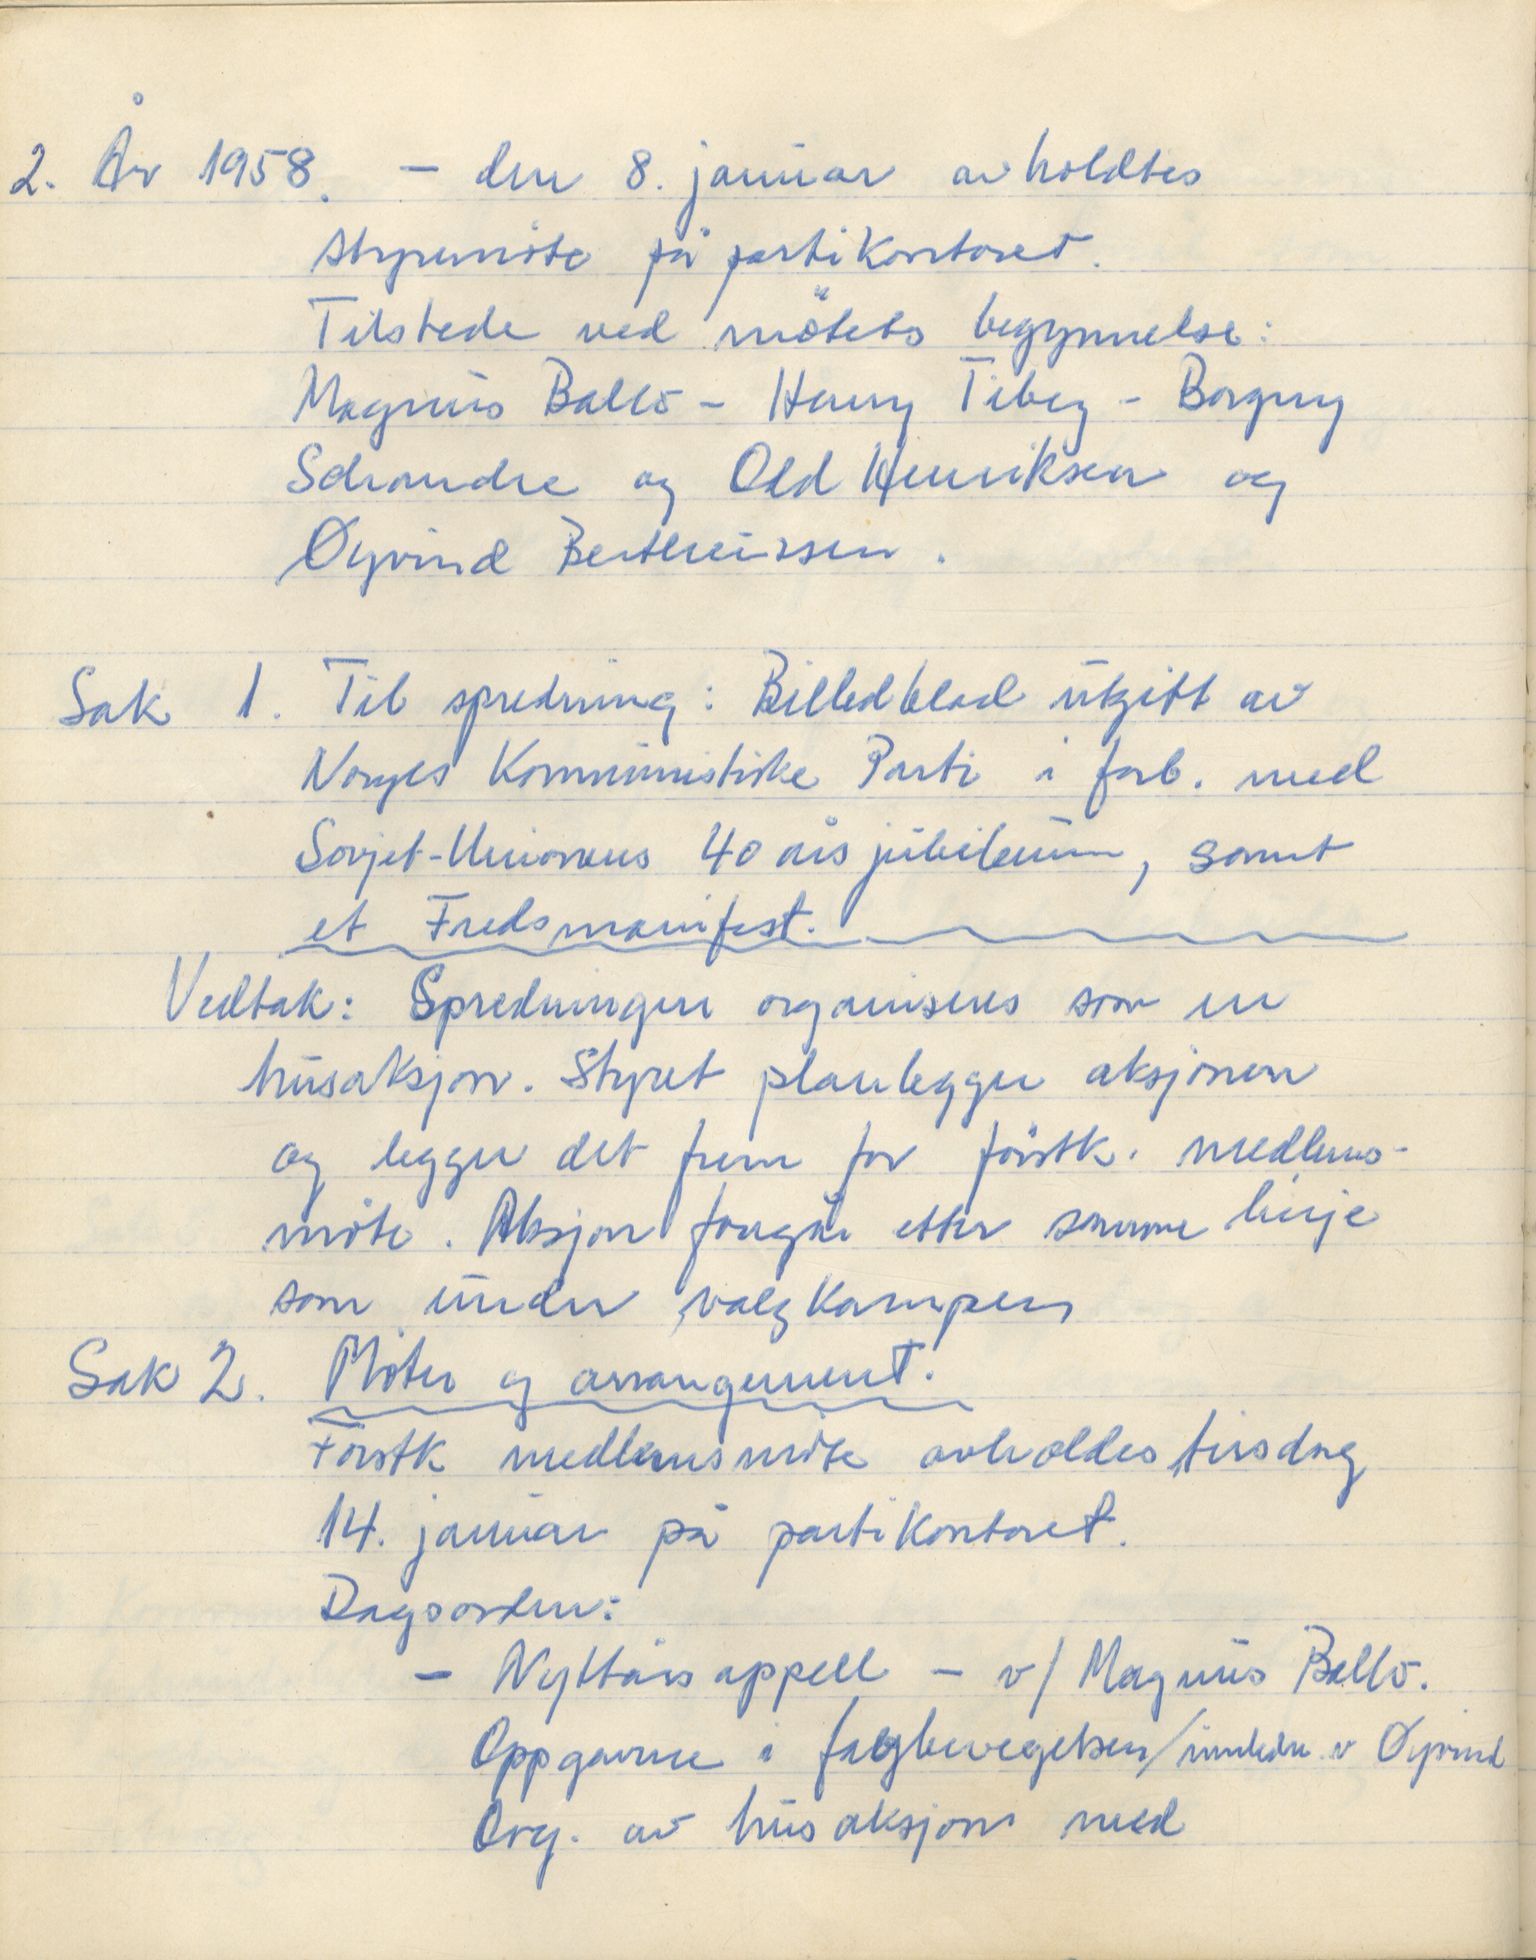 2. År 1958. – den 8. januar avholdtes
styremöte på partikontoret.
Tilstede ved mötets begynnelse:
Magnus Ballo – Henry Tiby – Borgny
og Odd Henriksen og
Øyvind Bertheussen.
Sak 1. Til spredning: Billedblad utgitt av
Norges Kommunistiske Parti i forb. med
Sovjet-Unionens 40 års jubileum, samt
et Fredsmanifest.
Vedtak: Spredningen organiseres som en
husaksjon. Styret planlegger aksjonen
og legger det frem for förstk. medlems-
möte. Aksjon foregår etter samme linje
som under valgkampen
Sak 2. Möter og arrangement.
Förstk medlemsmöte avholdes tirsdag
14. januar på partikontoret.
Dagsorden:
– Nyttårsappell – v/ Magnus Ballo.
Oppgavene i fagbevegelsen/innleder v Øyvind
Org. av husaksjon med